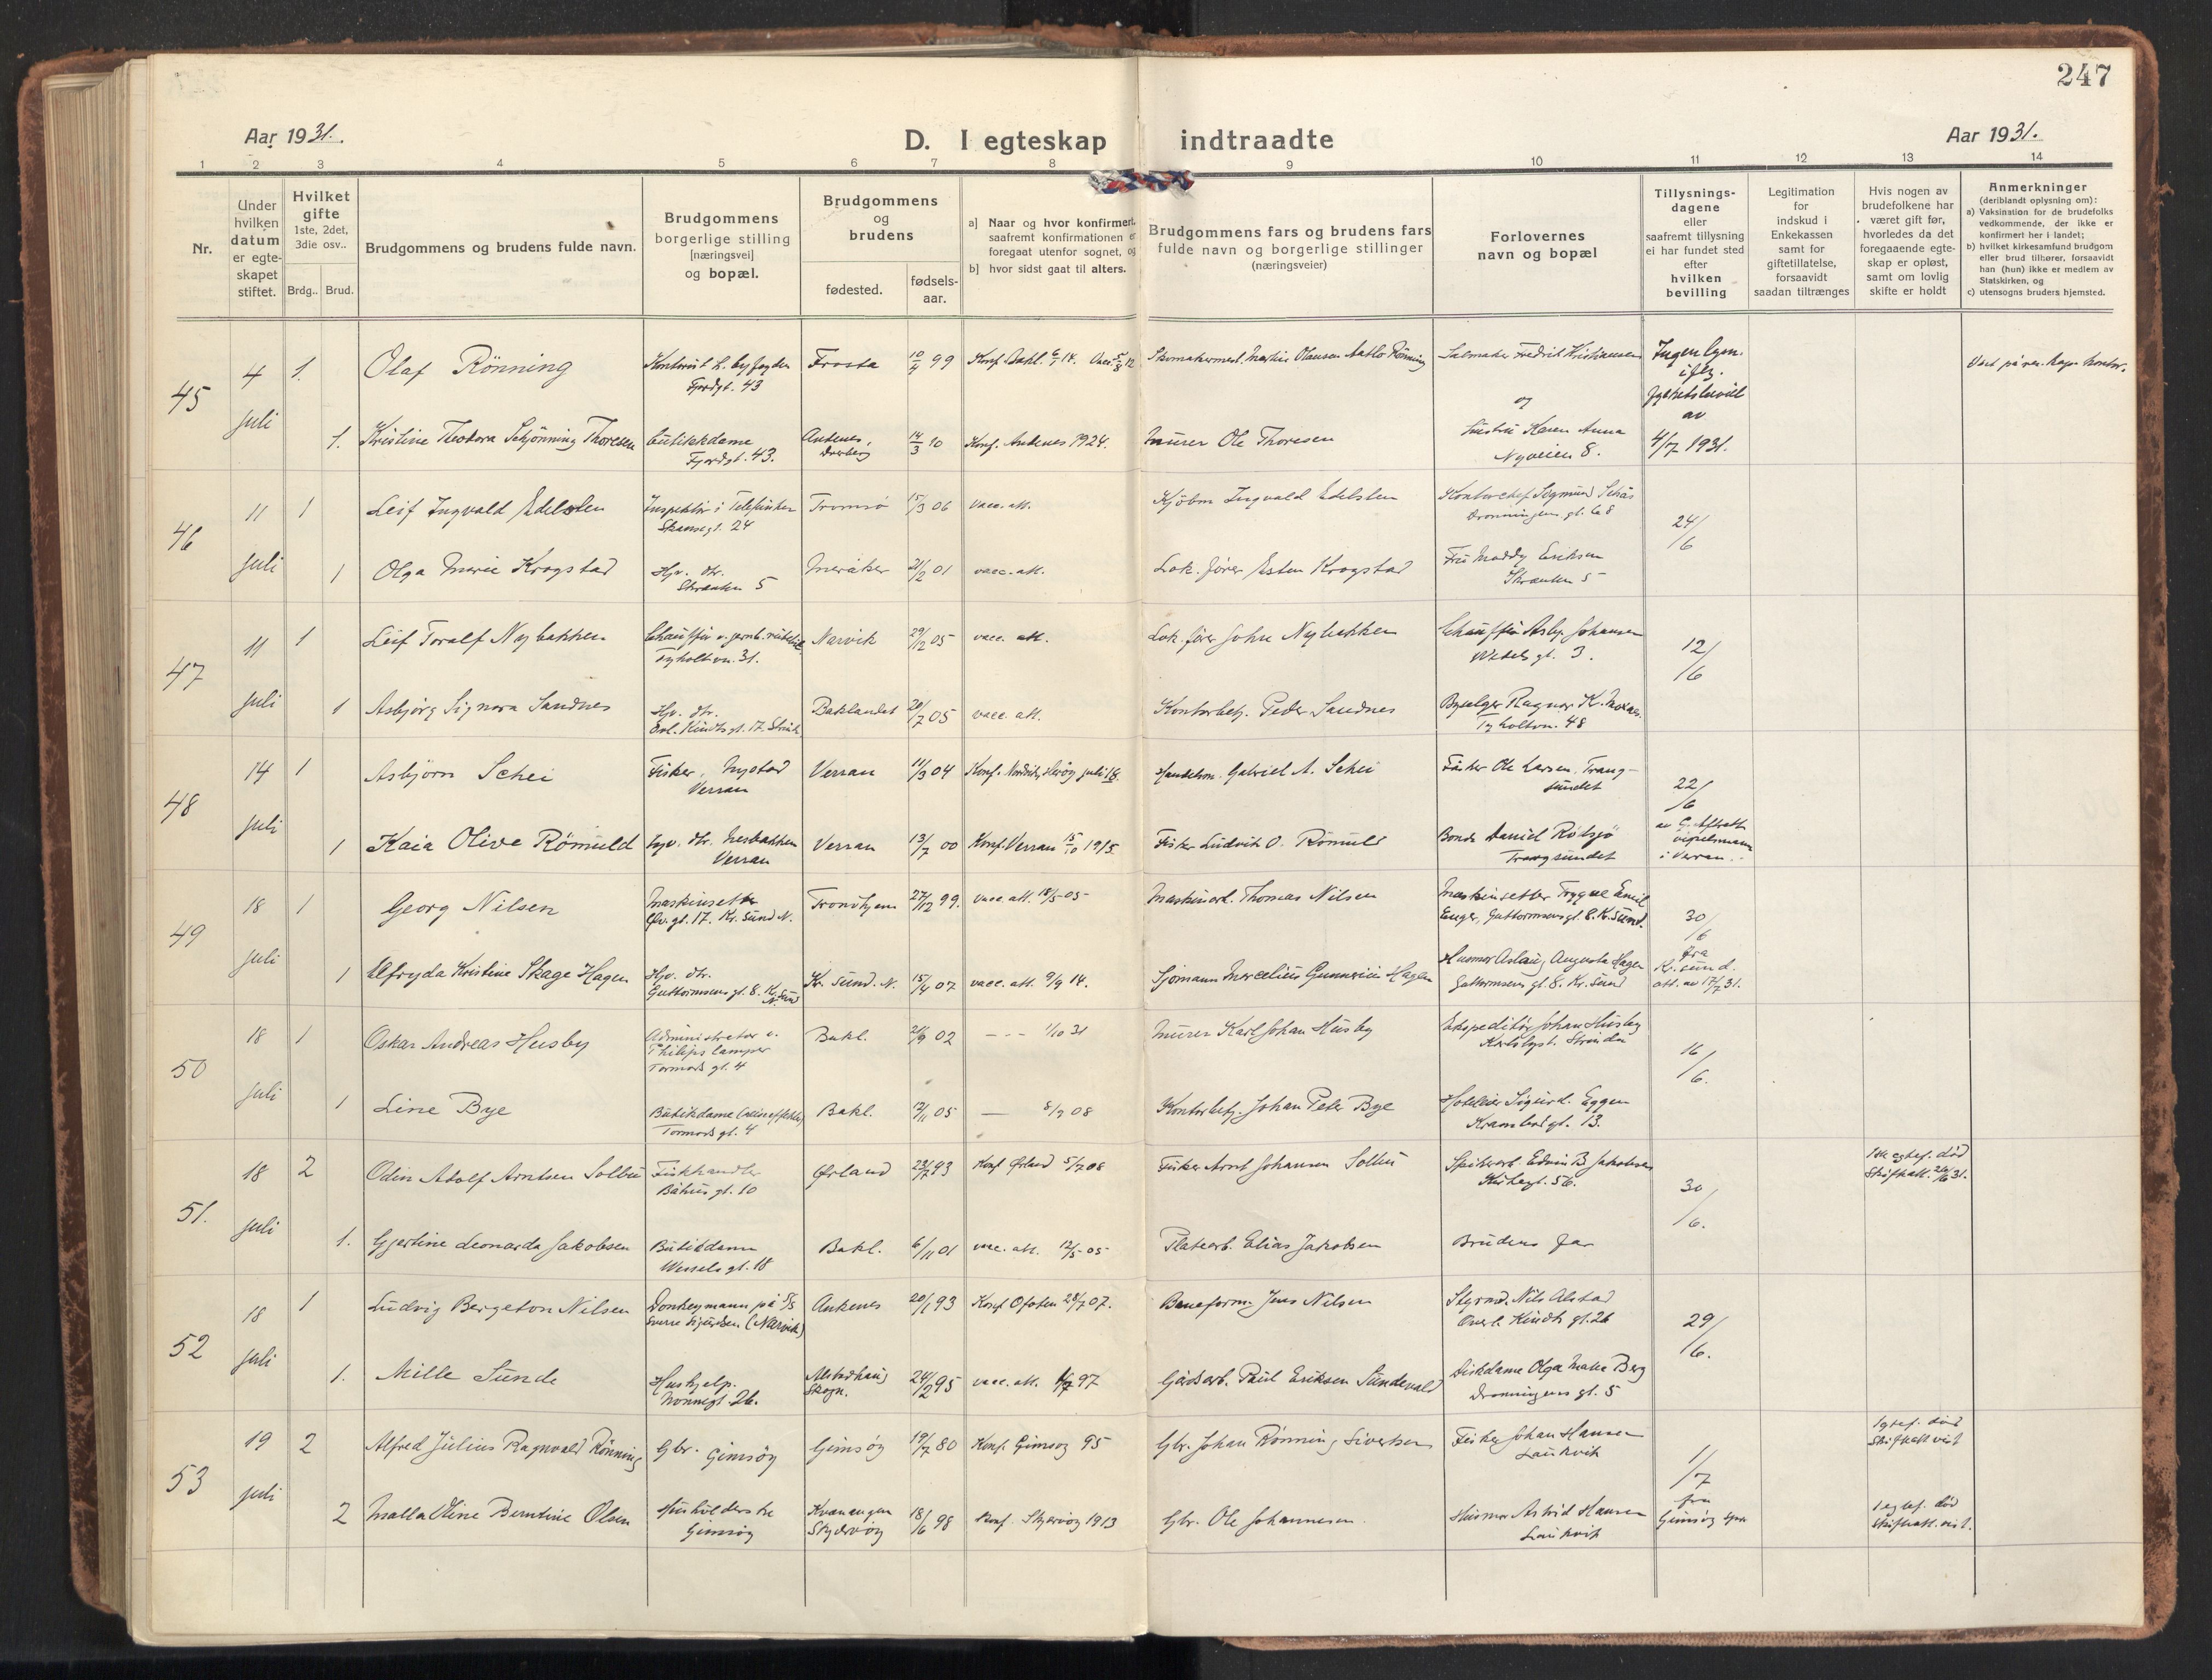 247
Aar 1931.
D. I egteskap indtraadte
Aar 1931.
1 2 3 4 5 6 7 8 9 10 11 12 13 14
Nr.
Under hvilken datum er egteskapet stiftet.
Hvilket gifte 1ste, 2det, 3die osv..
Brdg.. Brud.
Brudgommens og brudens fulde navn.
Brudgommens borgerlige stilling [næringsvei] og bopæl.
Brudgommens og brudens
fødested.
fødsels-aar.
a] Naar og hvor konfirmert, saafremt konfirmationen er foregaat utenfor sognet, og
b] hvor sidst gaat til alters.
Brudgommens fars og brudens fars fulde navn og borgerlige stillinger (næringsveier)
Forlovernes navn og bopæl
Tillysnings-dagene eller saafremt tillysning ei har fundet sted efter hvilken bevilling
Legitimation for indskud i Enkekassen samt for giftetillatelse, forsaavidt saadan tiltrænges
Hvis nogen av brudefolkene har været gift før, hvorledes da det foregaaende egteskap er opløst, samt om lovlig skifte er holdt
Anmerkninger (deriblandt oplysning om):
a) Vaksination for de brudefolks vedkommende, der ikke er konfirmert her i landet;
b) hvilket kirkesamfund brudgom eller brud tilhører, forsaavidt han (hun) ikke er medlem av Statskirken, og
c) utensogns bruders hjemsted.
45 4 juli 1. Olaf Rönning
Kontorist h. byfogden Fjordgt. 43
Frosta 10/4 99
Skomakermest. Martin Olausen Aatlo Rönning
Salmaker Fredrik Kristiansen
og
1. Kristine Teodora Schjönning Thoresen
butikkdame Fjordgt. 43.
Andenes, Dverberg 14/3 10 Konf. Andenes 1924.
Murer Ole Thoresen
Hustru Karen Anna Nyveien 8.
av 4/7 1931.
46 11 juli 1 Leif Ingvald Edelsten
Skansegt. 24
Tromsø 15/3 06 vacc. att.
Kjöbm Ingvald Edelsten
Kontorchef Sigmund
Dronningens gt. 68
24/6
1 Olga Marie Krogstad
Hjv. dtr. Skranken 5
Meråker 21/2 01 vacc. att.
Lok. fører Esten Krogstad
Fru Moddy Eriksen Skranken 5
47 11 juli 1 Leif Toralf Nybakken
Tyholtvn. 31.
Narvik 29/12 05 vacc. att.
Lok. fører John Nybakken
Chauffør Asbj. Johansen
Wedels gt. 3.
12/6
1 Asbjørg Signora Sandnes
Hjv. dtr.
Baklandet 20/7 05 vacc. att.
Kontorbetj. Peder Sandnes
Tyholtvn. 48
48 14 juli 1 Asbjörn Schei
Fisker, Nystad Verran
Verran 11/3 04
Handelsm. Gabriel A. Schei
Fisker Ole Larsen, Trangsundet
22/6
i Verran.
1 Kaia Olive Römuld
hjv. dtr. Nesbakken Verran
Verran 13/7 00 Konf. Verran 15/10 1915.
Fisker Ludvik O. Römuld
Bonde Daniel Rödsjö Trangsundet
49 18 juli 1 Georg Nilsen
Maskinsetter
gt. 17. Kr. sund N.
Trondhjem 27/12 99. vacc. att. 18/5-05
Maskinarb. Thomas Nilsen
Maskinsetter Trygve Emil Enger, Guttormsens gt. 8. Kr. Sund.
30/6 fra Kr. sund. att. av 17/7 31.
1 Alfryda Kristine Skage Hagen
Hjv. dtr. Guttormsens gt. 8. Kr. Sund N.
Kr. sund. N. 15/4 07 vacc. att. 9/9 14.
Sjömann Marcelius Gunnerius Hagen
Husmor Aslaug Augusta Hagen Guttormsens gt. 8. Kr. Sund
50 18 juli 1 Oskar Andreas Husby
Administrator v. Philips lamper Tormods gt. 4
Bakl. 21/9 02 - - - 1/10 31
Murer Karl Johan Husby
Ekspeditör Johan Husby
Strinda
16/6.
1 Line Bye
Tormods gt. 4
Bakl. 12/11 05 — 8/9 08
Kontorbetj. Johan Peter Bye
Hotelleier Sigurd. Eggen
Krambodgt. 13.
51. 18 juli 2 Odin Adolf Arntsen Solbu
Fiskhandler Båhus gt. 10
Ørland 23/7 93 Konf Ørland 5/7 08
Fisker Arnt Johansen Solbu
Spikerarb. Edvin B. Jakobsen
Kirkegt. 56.
30/6.
1ste egtef. död Skifteatt. 26/6 31.
1. Gjertine Leonarda Jakobsen
Butikdame Wessels gt. 18
Bakl. 6/11 01 vacc. att. 12/5-05
Platearb. Elias Jakobsen
Brudens far
52 18 juli 1 Ludvig Bergeton Nilsen
Donkeymann på S/S Sverre Sigurdsen (Narvik)
Ankenes 20/1 93 Konf Ofoten 28/7 07.
Baneform. Jens Nilsen
Styrmd. Nils Alstad
Overl. Kindts gt. 26
29/6.
1. Mille Sunde
Hushjelp. Nonnegt. 26.
Alstadhaug Skogn. 24/2 95 vacc. att.
Gårdsarb. Paul Eriksen Sundevald
Diskdame Olga Marie Berg
Dronningens gt. 5
53 19 juli 2 Alfred Julius Ragnvald Rönning
Gbr. Gimsöy
Gimsöy 19/7 80 Konf. Gimsöy 95
Gbr. Johan Rønning Sivertsen
Fisker Johan Hansen Laukvik
1/7 fra Gimsöy spr.
1 egtef. död skifteatt vist
2 Malla Oline Berntine Olsen
Husholderske Gimsöy
Kvænangen Skjervöy 18/6 98 Konf. Skjervöy 1913
Gbr. Ole Johannesen.
Husmor Astrid Hansen Laukvik
1 egtef. död skifteatt. vist.